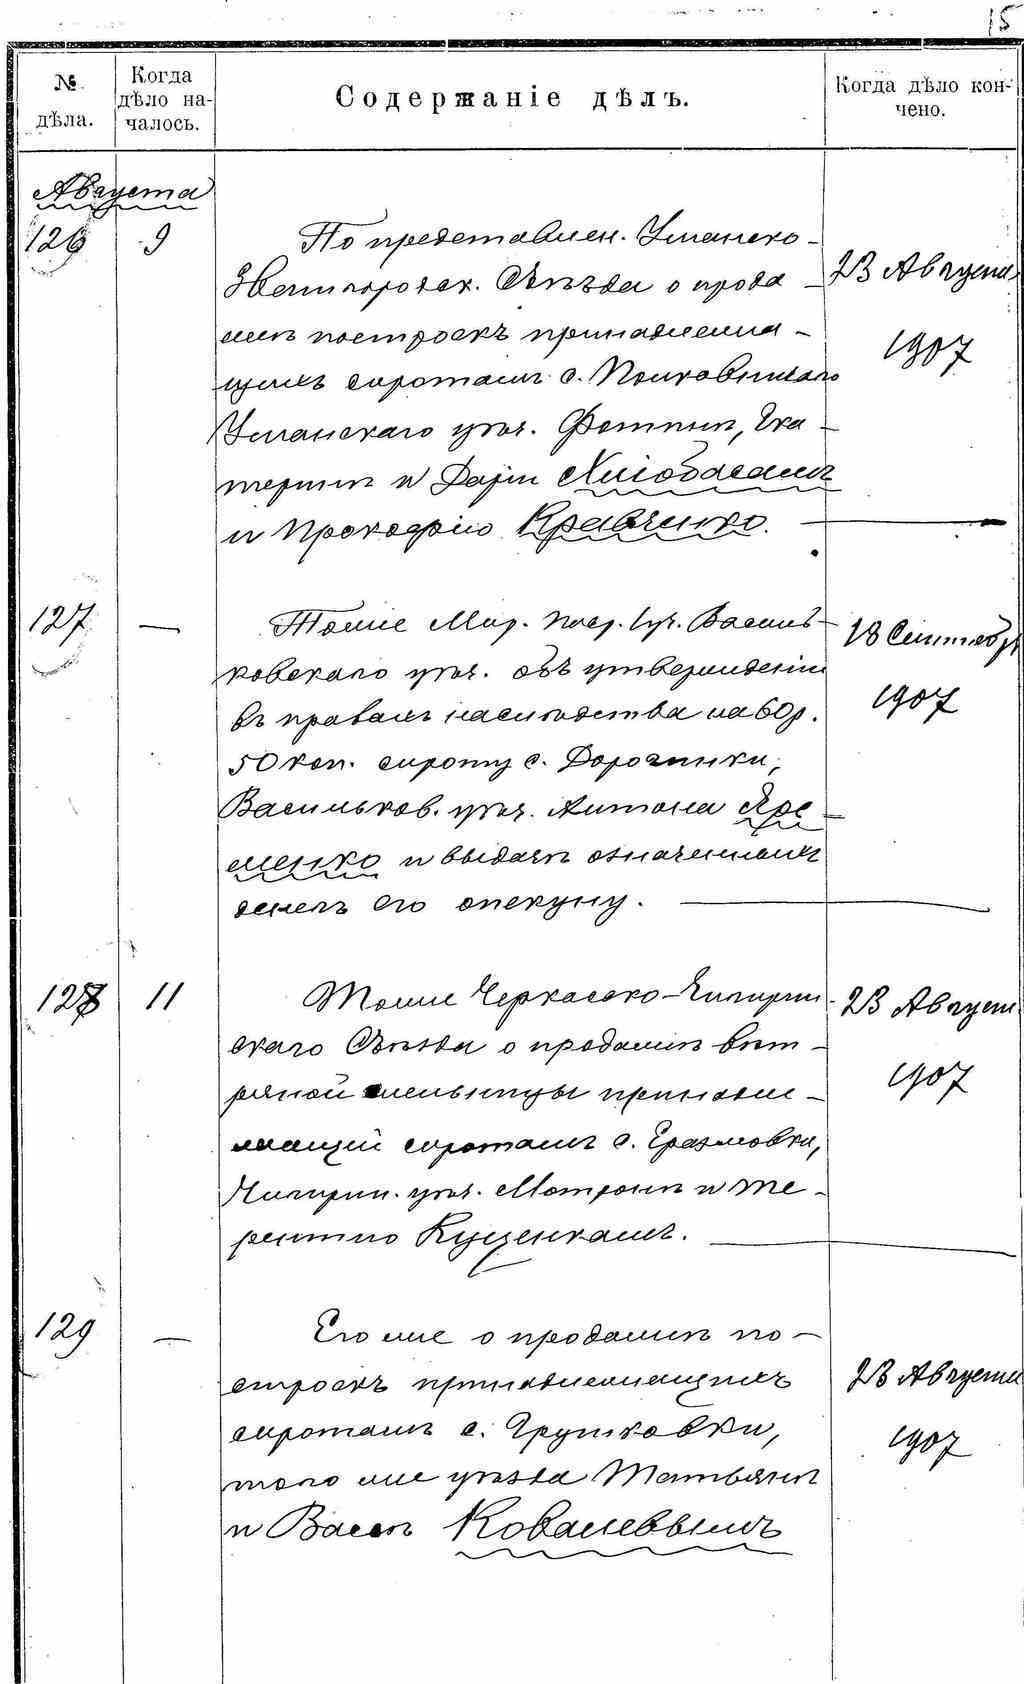 15
№ дѣла.
Когда дѣло на-
чалось.
Содержаніе дѣлъ.
Когда дѣло кон-
чено.
Августа
126 9
По представлен. Уманско-
Звенигородск. Съѣзда о прода-
жѣ построекъ принадлежа-
щихъ сиротамъ с. Полковничаго
Уманскаго уѣз. Фотинѣ, Ека-
теринѣ и Даріи Хлібасамъ
и Прокофію Кравченко.
23 Августа
1907
127 —
Тоже Мир. Поср. 1 уч. Василь-
ковскаго уѣз. объ утвержденіи
въ правахъ наслѣдства на 60 р.
50 коп. сироту с. Дорогинки,
Васильков. уѣз. Антона Яре-
менко и выдачѣ означенныхъ
денегъ его опекуну.
18 Сентябр
1907
128 11
Тоже Черкасско-Чигирин-
скаго Съѣзда о продажѣ вѣт-
ряной мельницы принадле-
жащей сиротамъ с. Еразмовки,
Чигирин. уѣз. Мотронѣ и Те-
рентію Куценкамъ.
23 Август
1907
129 —
Его же о продажѣ по-
строекъ принадлежащихъ
сиротамъ с. Грушковки,
того же уѣзда Татьянѣ
и Вассѣ Ковалевымъ
23 Августа
1907